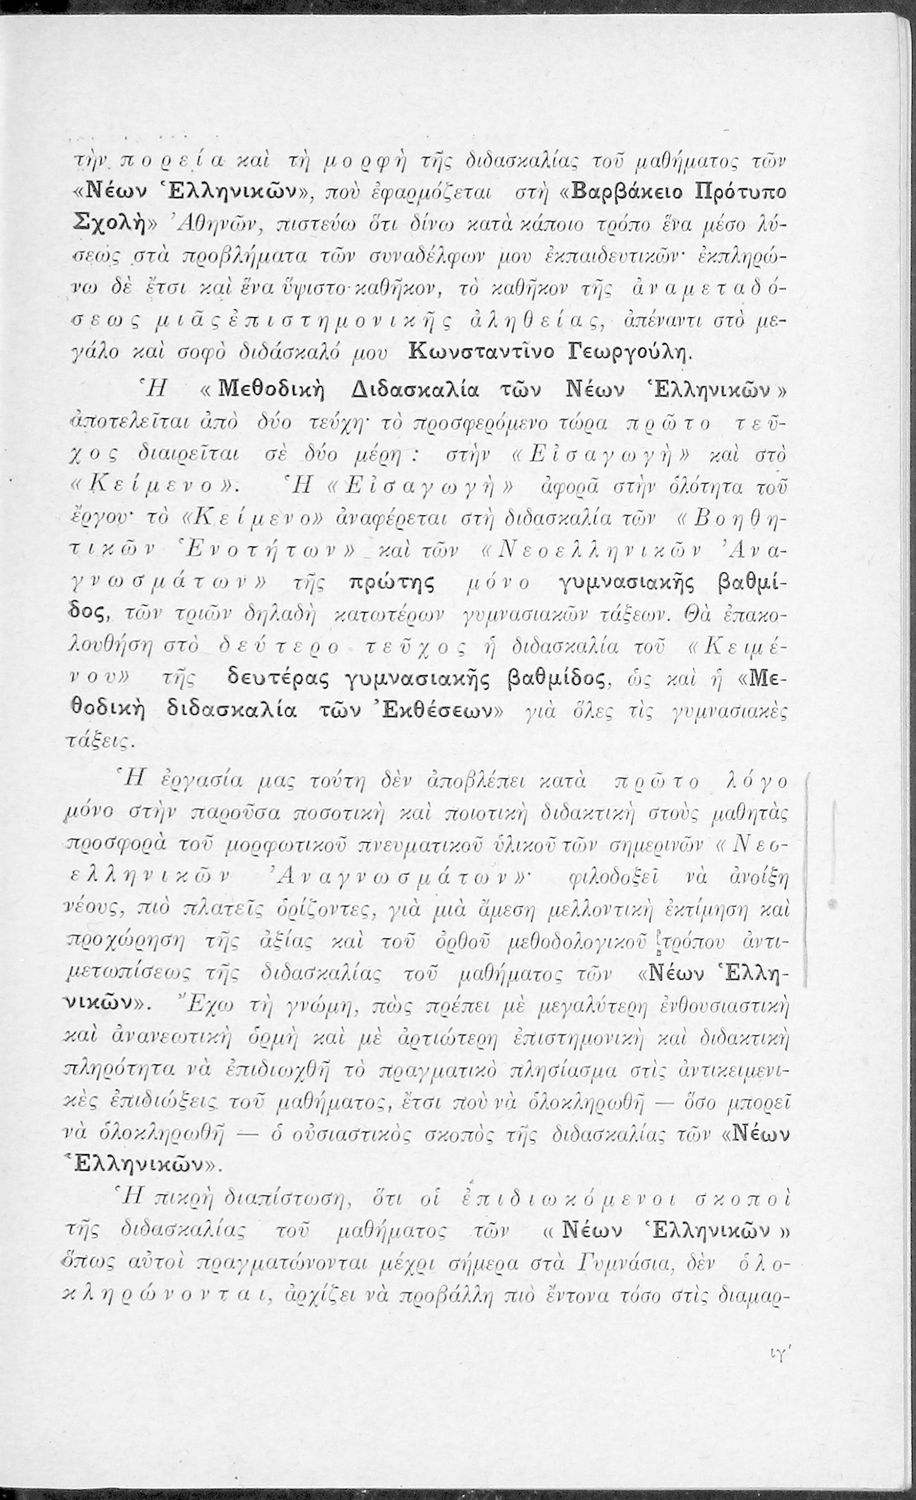 τὴν π ο ρ ε ί α καὶ τὴ μ ο ρ φ ὴ τῆς διδασκαλίας τοῦ μαθήματος τῶν
«Νέων Ἑλληνικῶν», ποὺ ἐφαρμόζεται στὴ «Βαρβάκειο Πρότυπο
Σχολὴ» Ἀθηνῶν, πιστεύω ὅτι δίνω κατὰ κάποιο τρόπο ἕνα μέσο λύ-
σεως στὰ προβλήματα τῶν συναδέλφων μου ἐκπαιδευτικῶν· ἐκπληρώ-
νω δὲ ἔτσι καὶ ἕνα ὕψιστο καθῆκον, τὸ καθῆκον τῆς ἀ ν α μ ε τ α δ ό-
σ ε ω ς μ ι ᾶ ς ἐ π ι σ τ η μ ο ν ι κ ῆ ς ἀ λ η θ ε ί α ς, ἀπέναντι στὸ με-
γάλο καὶ σοφὸ διδάσκαλό μου Κωνσταντῖνο Γεωργούλη.
Ἡ «Μεθοδικὴ Διδασκαλία τῶν Νέων Ἑλληνικῶν»
ἀποτελεῖται ἀπὸ δύο τεύχη· τὸ προσφερόμενο τώρα π ρ ῶ τ ο τ ε ῦ-
χ ο ς διαιρεῖται σὲ δύο μέρη : στὴν «Ε ἰ σ α γ ω γ ὴ» καὶ στὸ
«Κ ε ί μ ε ν ο». Ἡ «Ε ἰ σ α γ ω γ ὴ» ἀφορᾶ στὴν ὁλότητα τοῦ
ἔργου· τὸ «Κ ε ί μ ε ν ο» ἀναφέρεται στὴ διδασκαλία τῶν «Β ο η θ η-
τ ι κ ῶ ν Ἑ ν ο τ ή τ ω ν» καὶ τῶν «Ν ε ο ε λ λ η ν ι κ ῶ ν Ἀ ν α-
γ ν ω σ μ ά τ ω ν» τῆς πρώτης μ ό ν ο γυμνασιακῆς βαθμί-
δος, τῶν τριῶν δηλαδὴ κατωτέρων γυμνασιακῶν τάξεων. Θὰ ἐπακο-
λουθήση στὸ δ ε ύ τ ε ρ ο τ ε ῦ χ ο ς ἡ διδασκαλία τοῦ «Κ ε ι μ έ-
ν ο υ» τῆς δευτέρας γυμνασιακῆς βαθμίδος, ὡς καὶ ἡ «Με-
θοδικὴ διδασκαλία τῶν Ἐκθέσεων» γιὰ ὅλες τὶς γυμνασιακὲς
τάξεις.
Ἡ ἐργασία μας τούτη δὲν ἀποβλέπει κατὰ π ρ ῶ τ ο λ ό γ ο
μόνο στὴν παροῦσα ποσοτικὴ καὶ ποιοτικὴ διδακτικὴ στοὺς μαθητὰς
προσφορὰ τοῦ μορφωτικοῦ πνευματικοῦ ὑλικοῦ τῶν σημερινῶν «Ν ε ο-
ε λ λ η ν ι κ ῶ ν Ἀ ν α γ ν ω σ μ ά τ ω ν»· φιλοδοξεῖ νὰ ἀνοίξη
νέους, πιὸ πλατεῖς ὁρίζοντες, γιὰ μιὰ ἄμεση μελλοντικὴ ἐκτίμηση καὶ
προχώρηση τῆς ἀξίας καὶ τοῦ ὀρθοῦ μεθοδολογικοῦ τρόπου ἀντι-
μετωπίσεως τῆς διδασκαλίας τοῦ μαθήματος τῶν «Νέων Ἑλλη-
νικῶν». Ἔχω τὴ γνώμη, πὼς πρέπει μὲ μεγαλύτερη ἐνθουσιαστικὴ
καὶ ἀνανεωτικὴ ὁρμὴ καὶ μὲ ἀρτιώτερη ἐπιστημονικὴ καὶ διδακτικὴ
πληρότητα νὰ ἐπιδιωχθῆ τὸ πραγματικὸ πλησίασμα στὶς ἀντικειμενι-
κὲς ἐπιδιώξεις τοῦ μαθήματος, ἔτσι ποὺ νὰ ὁλοκληρωθῆ — ὅσο μπορεῖ
νὰ ὁλοκληρωθῆ — ὁ οὐσιαστικὸς σκοπὸς τῆς διδασκαλίας τῶν «Νέων
Ἑλληνικῶν».
Ἡ πικρὴ διαπίστωση, ὅτι οἱ ἐ π ι δ ι ω κ ό μ ε ν ο ι σ κ ο π ο ὶ
τῆς διδασκαλίας τοῦ μαθήματος τῶν «Νέων Ἑλληνικῶν»
ὅπως αὐτοὶ πραγματώνονται μέχρι σήμερα στὰ Γυμνάσια, δὲν ὁ λ ο-
κ λ η ρ ώ ν ο ν τ α ι, ἀρχίζει νὰ προβάλλη πιὸ ἔντονα τόσο στὶς διαμαρ-
ιγ'